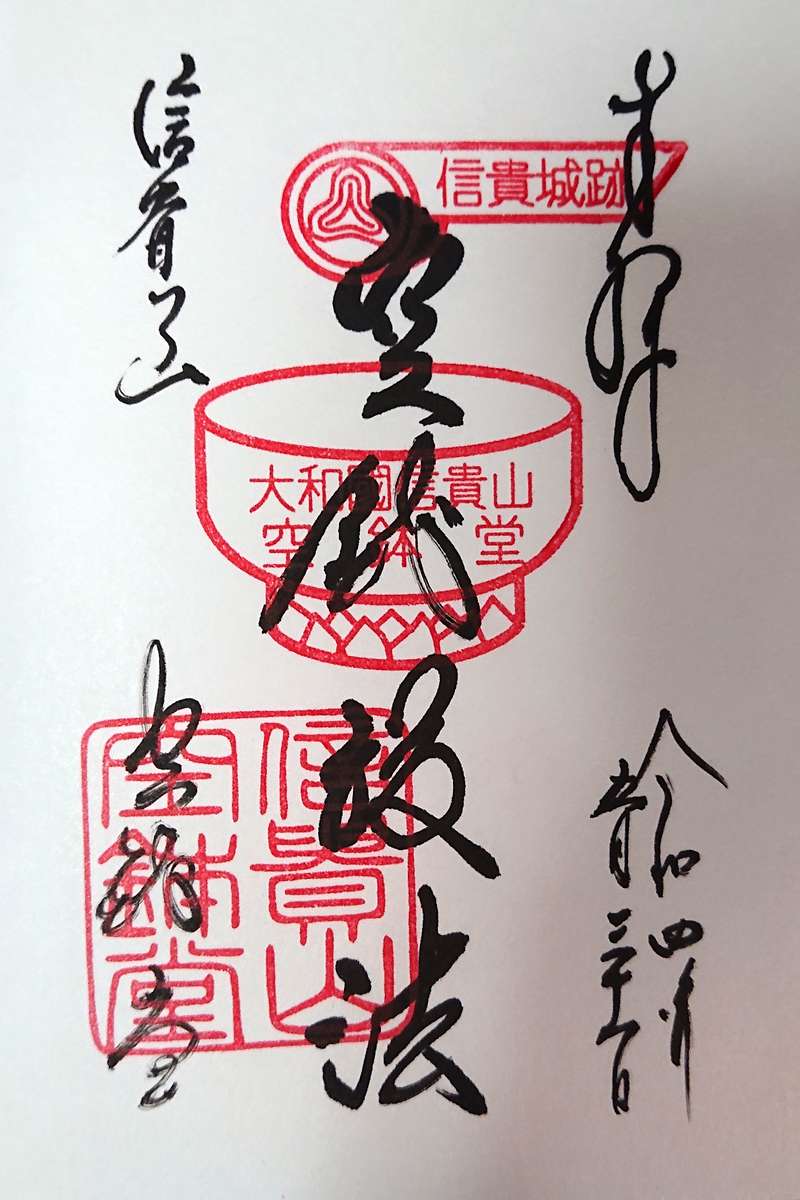 奉拝
令和四年
五月三十一日
信貴城跡
空鉢護法
大和國信貴山
空鉢堂
信貴山
空鉢堂
信貴山
空鉢堂